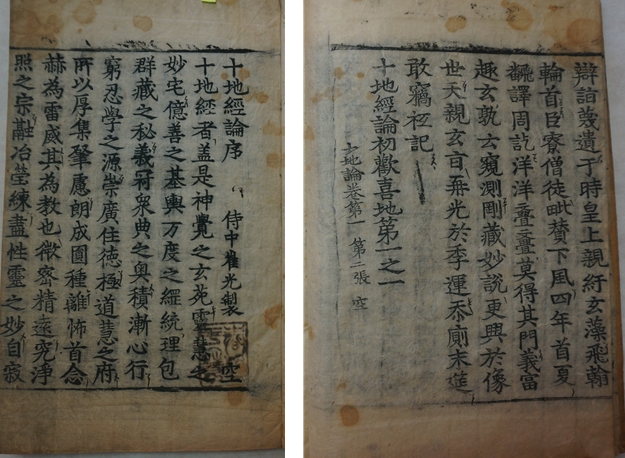 十地經論序 侍中崔光製 空
十地經者盖是神覺之玄苑靈慧之
妙宅億善之基輿万度之綱統理包
群藏之秘義冠衆典之奥積漸心行
窮忍學之源崇廣住德極道慧之府
所以厚集肇慮朗成圓種離怖首念
赫為雷威其為教也微密精遠究淨
照之宗融冶瑩練盡性靈之妙自寂
辯詣蔑遺于時皇上親紆玄藻飛翰
輪首臣寮僧徒毗賛下風四年首夏
飜譯周訖洋洋亹亹莫得其門義富
趣玄孰云窺測剛藏妙說更興於像
世天親玄旨再光於季運忝廁末筵
敢竊祗記
十地經論初歡喜地第一之一
十地論卷第一 第二張 空